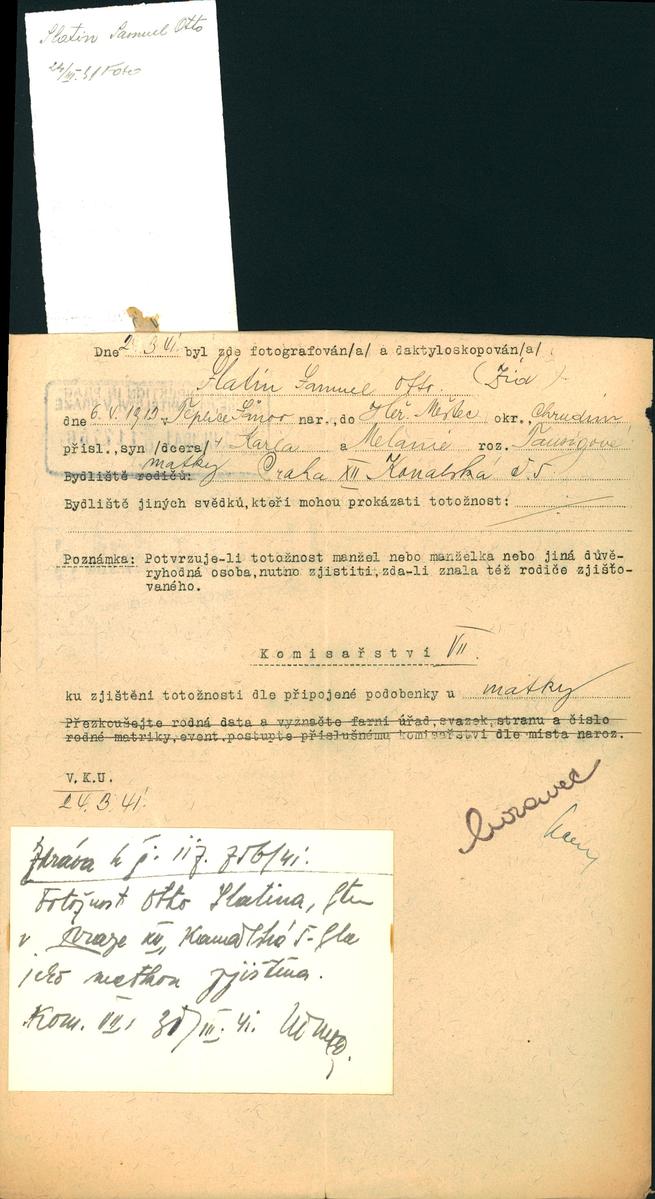 Slatin Samuel Otto
24/III. 41 Foto
Dne 2. 3. 41. byl zde fotografován/a/ a daktyloskopován/a/
Slatin Samuel Otto. (Žid)
dne 6. V. 1919 v Teplice Šanov nar.,do Heř. Městec okr., Chrudim
přísl.,syn /dcera/ Karla a Melanie roz. Taussigové
matky
Bydliště rodičů: Praha XII Kanalská č. 5
Bydliště jiných svědků,kteří mohou prokázati totožnost:
Poznámka: Potvrzuje-li totožnost manžel nebo manželka nebo jiná důvě-
ryhodná osoba,nutno zjistiti,zda-li znala též rodiče zjišťo-
vaného.
Komisařství VII.
ku zjištění totožnosti dle připojené podobenky u matky
Přezkoušejte rodná data a vyznačte farní úřad,svazek,stranu a číslo
rodné matriky,event.postupte příslušnému komisařství dle místa naroz.
V.K.U.
24. 3. 41.
Zpráva k j. 756/41.
Totožnost Otto Slatina,
v Praze XII, Kanalská 5
jeho matkou zjištěna.
Kom. VII, III. 41.